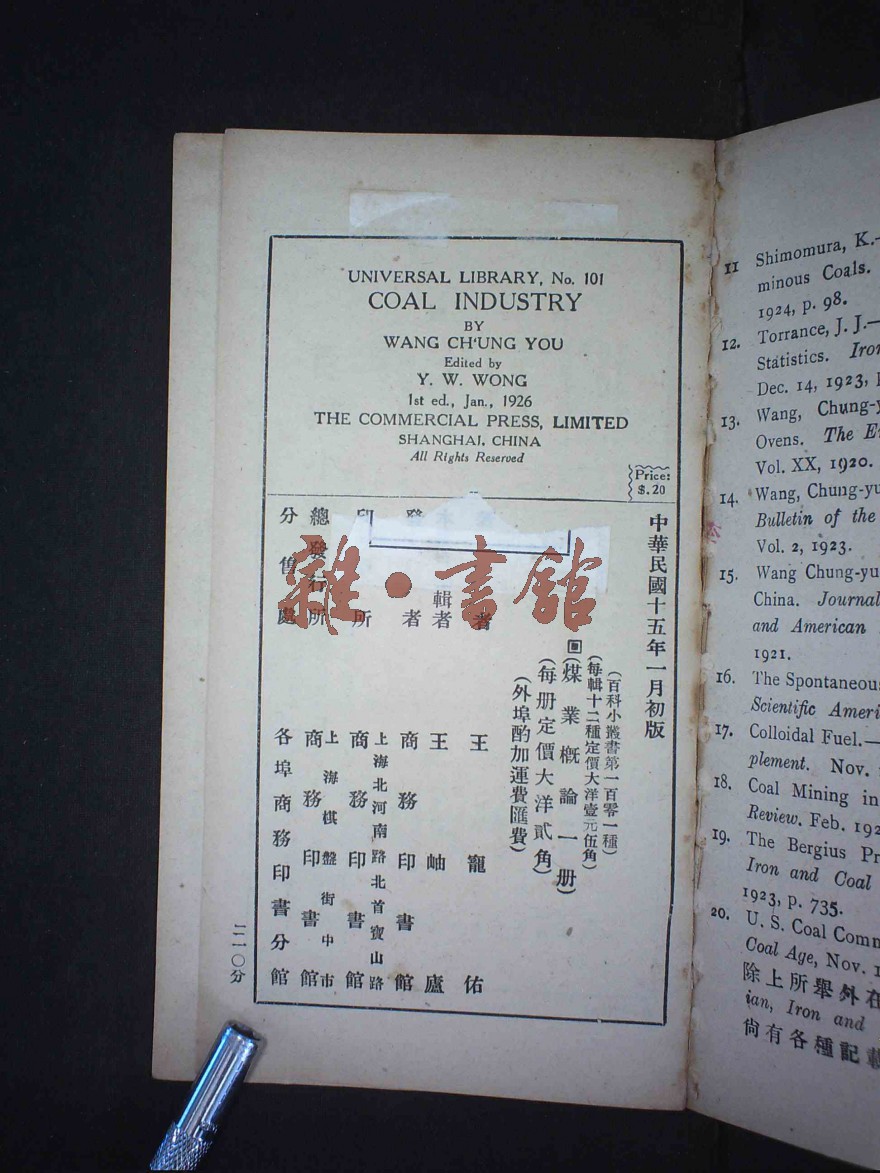 UNIVERSAL LIBRARY, No. 101
COAL INDUSTRY
BY
WANG CH'UNG YOU
Edited by
Y. W. WONG
1st ed., Jan., 1926
THE COMMERCIAL PRESS, LIMITED
SHANGHAI, CHINA
All Rights Reserved
Price:
$.20
中華民國十五年一月初版
(百科小叢書第一百零一種)
(每輯十二種定價大洋壹元伍角)
回(煤業概論一册)
(每册定價大洋貳角)
(外埠酌加運費匯費)
者 王寵佑
輯者 王岫廬
者 商務印書館
印 所 上海北河南路北首寶山路
商務印書館
總發行所 上海棋盤街中市
商務印書館
分售處 各埠商務印書分館
二一〇分
雜·書館
11 Shimomura, K.—
minous Coals.
1924, p. 98.
12. Torrance, J. J.—
Statistics. Iron
Dec. 14, 1923,
13. Wang, Chung-y
Ovens. The E
Vol. XX, 1920.
14. Wang, Chung-yu
Bulletin of the
Vol. 2, 1923.
15. Wang Chung-yu
China. Journal
and American
1921.
16. The Spontaneous
Scientific Ameri
17. Colloidal Fuel.—
plement. Nov.
18. Coal Mining in
Review. Feb. 192
19. The Bergius Pr
Iron and Coal
1923, p. 735.
20. U. S. Coal Comm
Coal Age, Nov. 1
除上所舉外在
ian, Iron and
尚有各種記載